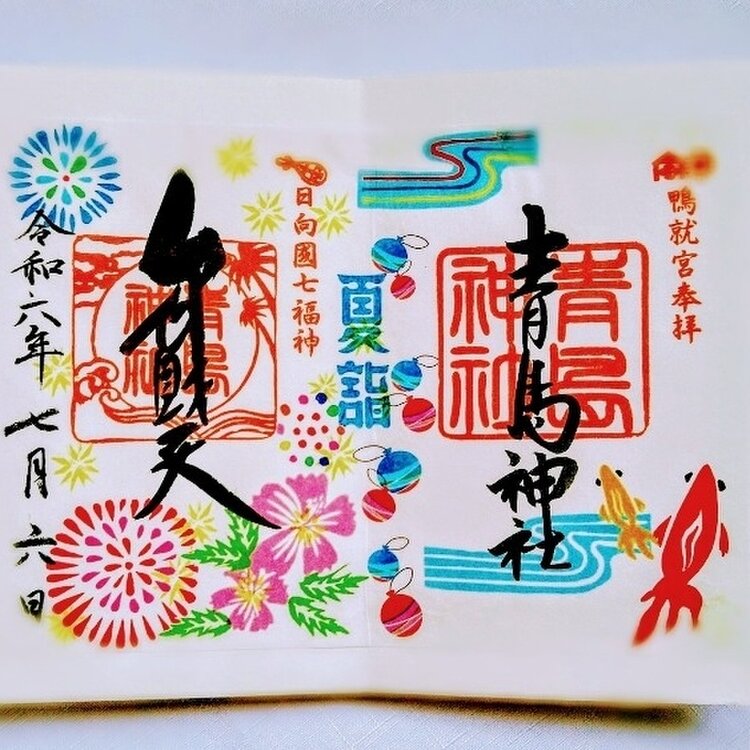 鴨就宮奉拝
青島神社
青島神社
夏詣
日向國七福神
弁財天
青島神社
令和六年七月六日